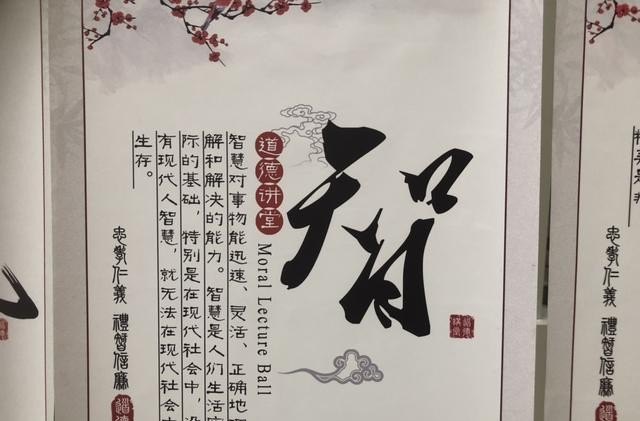 智
道德讲堂
Moral Lecture Ball
智慧对事物能迅速、灵活、正确地
解和解决的能力。智慧是人们生活
际的基础，特别是在现代社会中，
有现代人智慧，就无法在现代社会
生存。
忠孝仁義 禮智信廉
忠孝仁義 禮智信廉